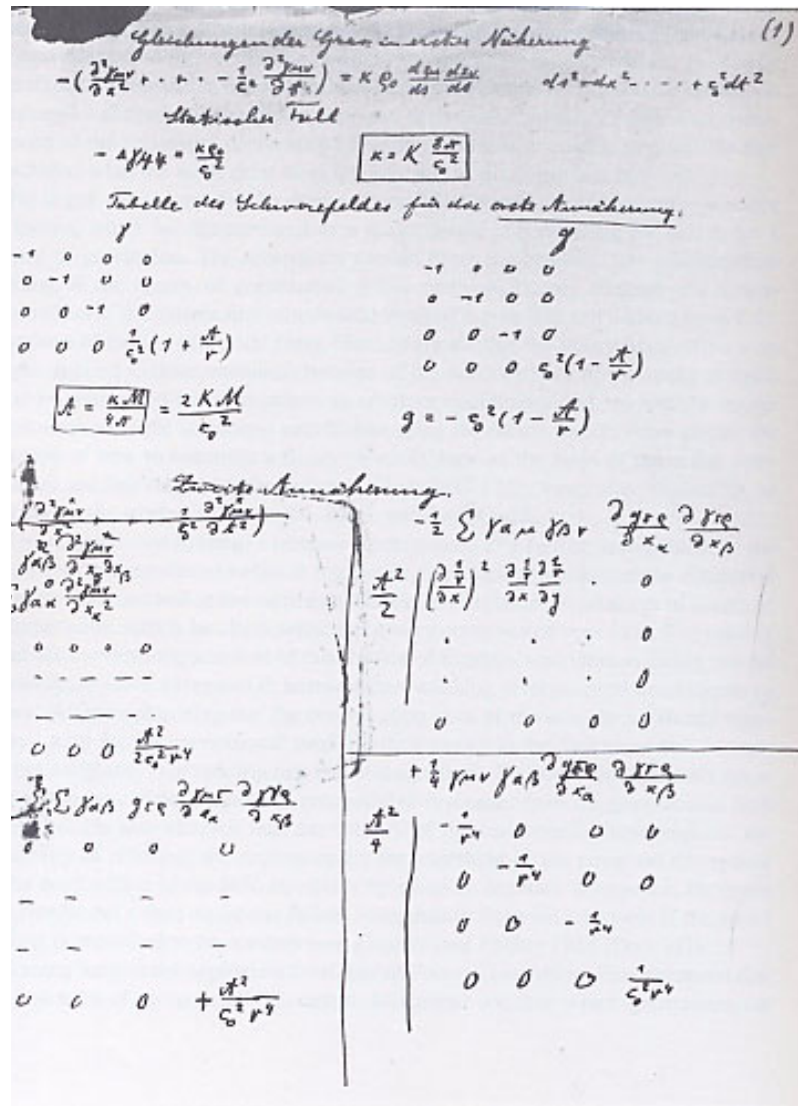 (1)
Gleichungen der Grav. in erster Näherung
-(∂²γμν/∂x² + · + · - 1/c₀² ∂²γμν/∂t²) = κ ρ₀ dxμ/ds dxν/ds    ds² = -dx² - · - · + c₀² dt²
Statischer Fall
- Δγ44 = κρ₀/c₀²    κ = K 8π/c₀²
Tabelle des Schwerefeldes für die erste Annäherung.
γ    g
-1 0 0 0    -1 0 0 0
0 -1 0 0    0 -1 0 0
0 0 -1 0    0 0 -1 0
0 0 0 1/c₀² (1 + A/r)    0 0 0 c₀² (1 - A/r)
A = κM/4π = 2KM/c₀²    g = - c₀² (1 - A/r)
Zweite Annäherung.
(∂²γμν/∂x² + · + · - 1/c₀² ∂²γμν/∂t²)
γαβ ∂²γμν/∂xα∂xβ
γαα ∂²γμν/∂xα²
0 0 0 0
- - - -
- - - -
0 0 0 A²/2c₀²r⁴
∑ γαβ gτρ ∂γμτ/∂xα ∂γνρ/∂xβ
0 0 0 0
- - - -
- - - -
0 0 0 + A²/c₀²r⁴
- 1/2 ∑ γαμ γβν ∂gτρ/∂xα ∂γτρ/∂xβ
A²/2 | (∂1/r/∂x)² ∂1/r/∂x ∂1/r/∂y · 0
· · · 0
· · · 0
0 0 0 0
+ 1/4 γμν γαβ ∂gτρ/∂xα ∂γτρ/∂xβ
A²/4 | - 1/r⁴ 0 0 0
0 - 1/r⁴ 0 0
0 0 - 1/r⁴
0 0 0 1/c₀²r⁴